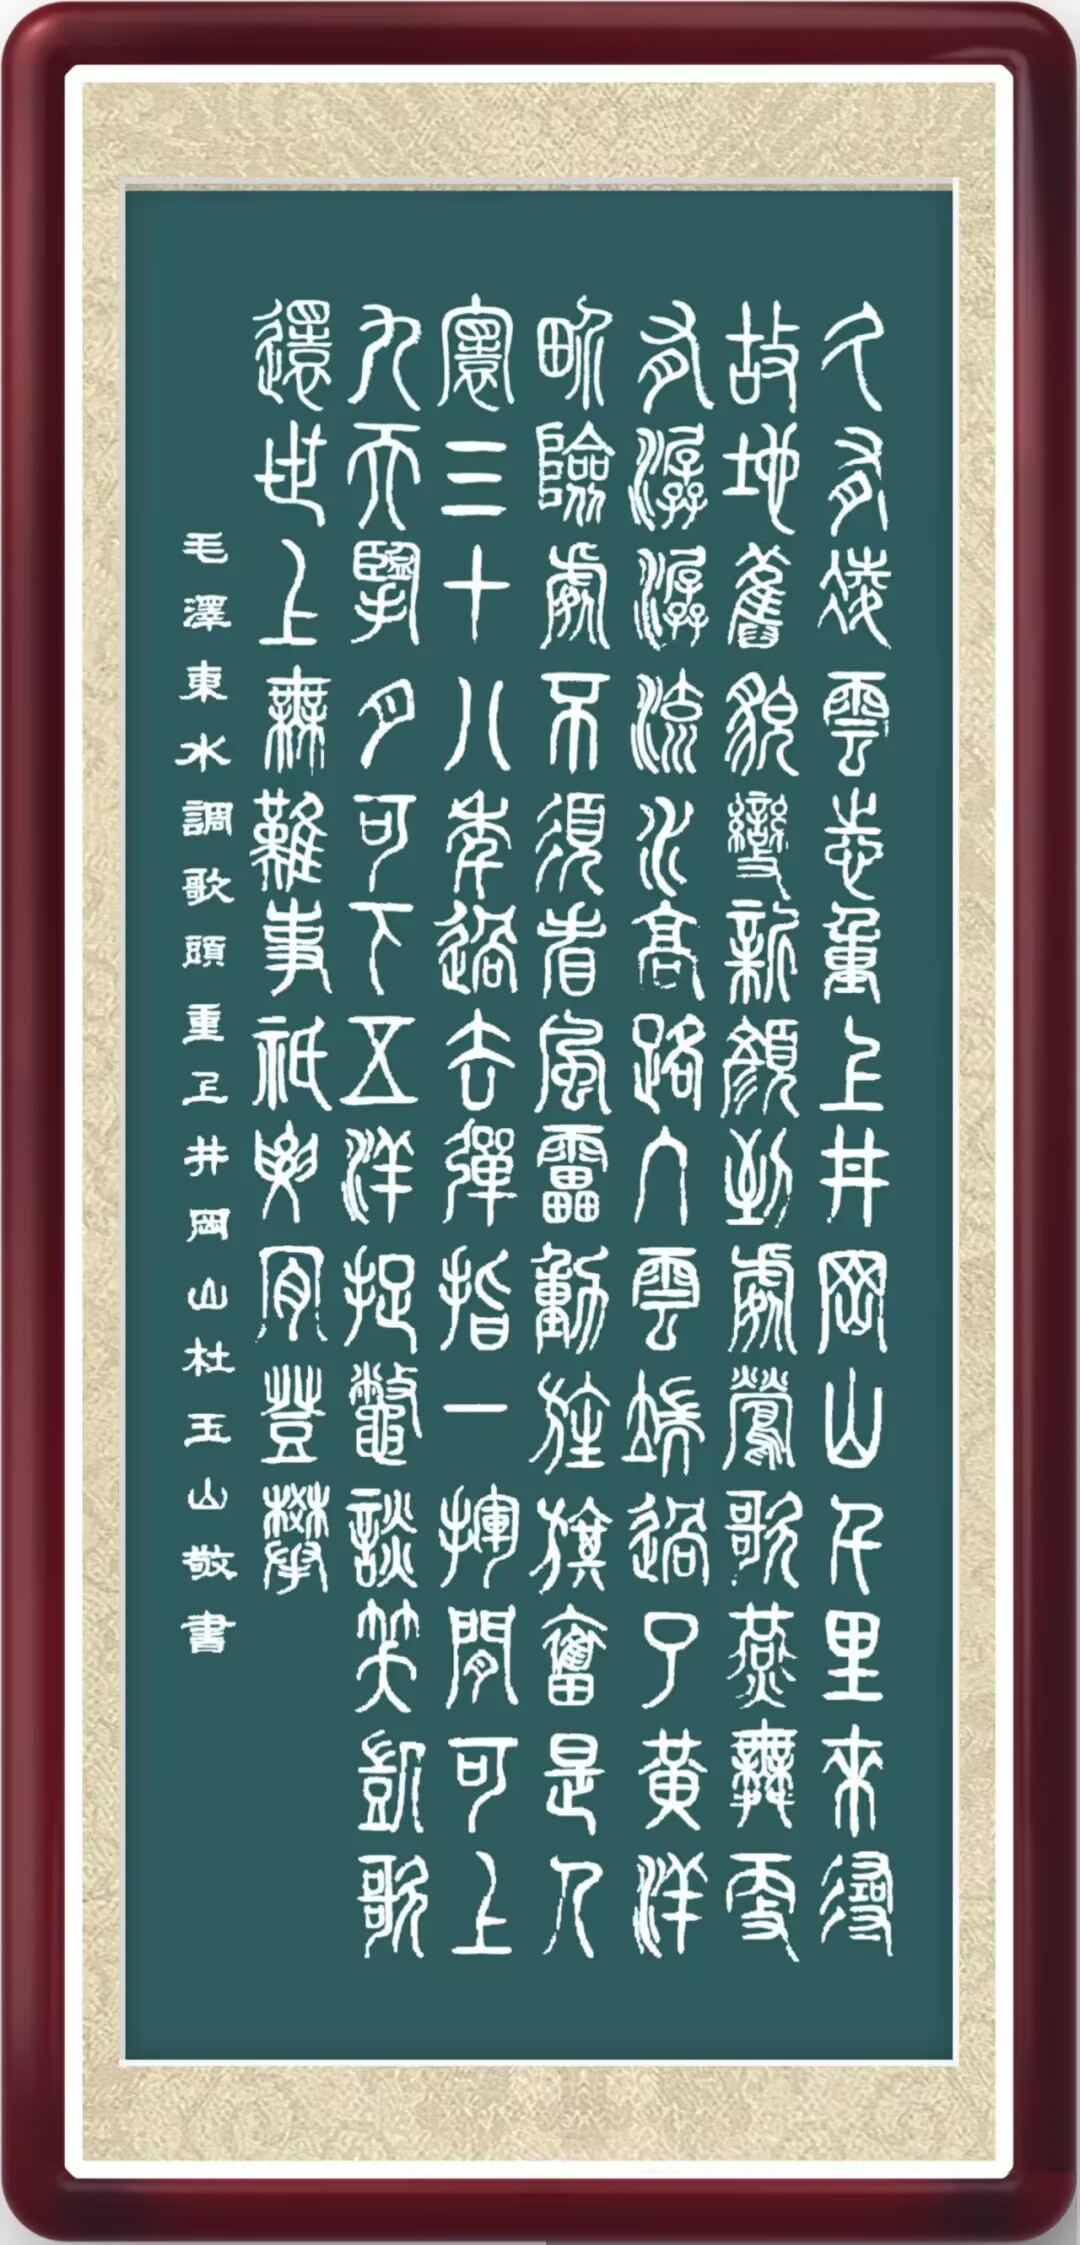 久有凌雲志重上井岡山千里來尋
故地舊貌變新顏到處鶯歌燕舞更
有潺潺流水高路入雲端過了黃洋
畍險處不須看風雷動旌旗奮是人
寰三十八年過去彈指一揮間可上
九天擥月可下五洋捉鱉談笑凱歌
還世上無難事祇要肯登攀
毛澤東水調歌頭重上井岡山杜玉山敬書